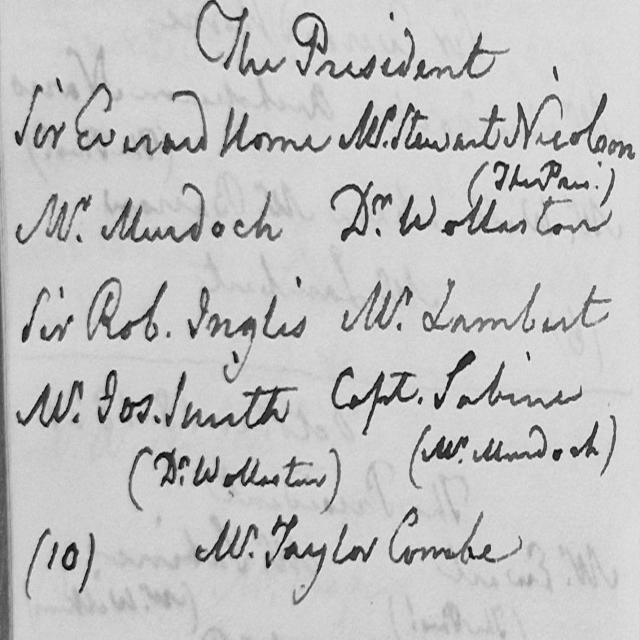 The President
Sir Everard Home Mr. Stewart Nicolson
(The Pres.)
Mr. Murdoch Dr. Wollaston
Sir Rob. Inglis Mr. Lambert
Mr. Jos. Smith Capt. Sabine
(Dr. Wollaston) (Mr. Murdoch)
(10) Mr. Taylor Combe